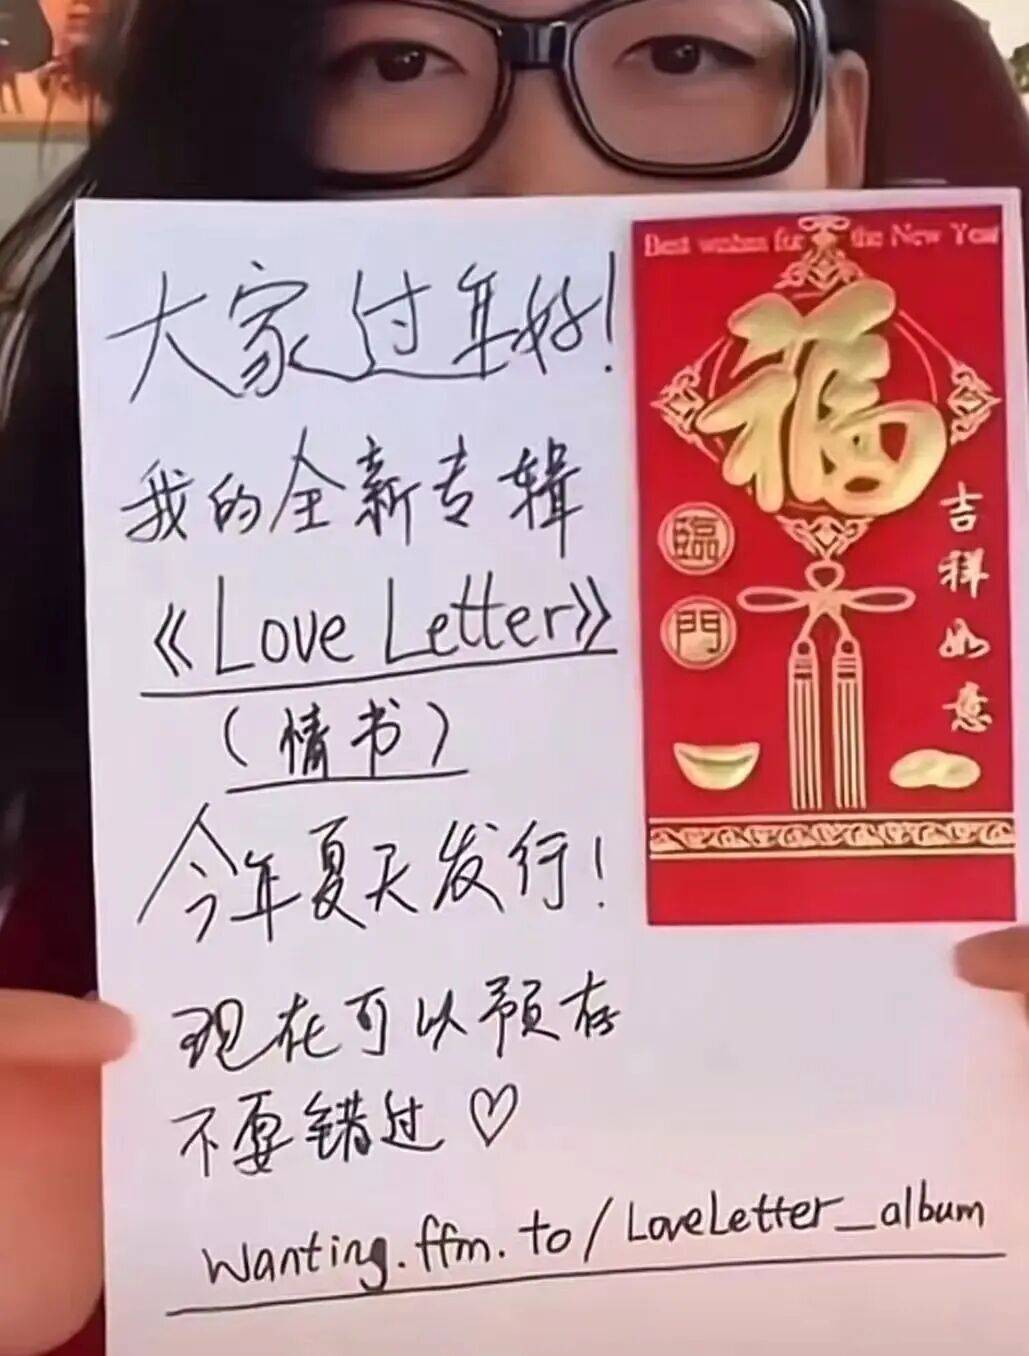 大家过年好！
我的全新专辑
《Love Letter》
（情书）
今年夏天发行！
现在可以预存
不要错过♡
wanting.ffm.to/LoveLetter_album
Best wishes for the New Year
福
臨
門
吉祥如意